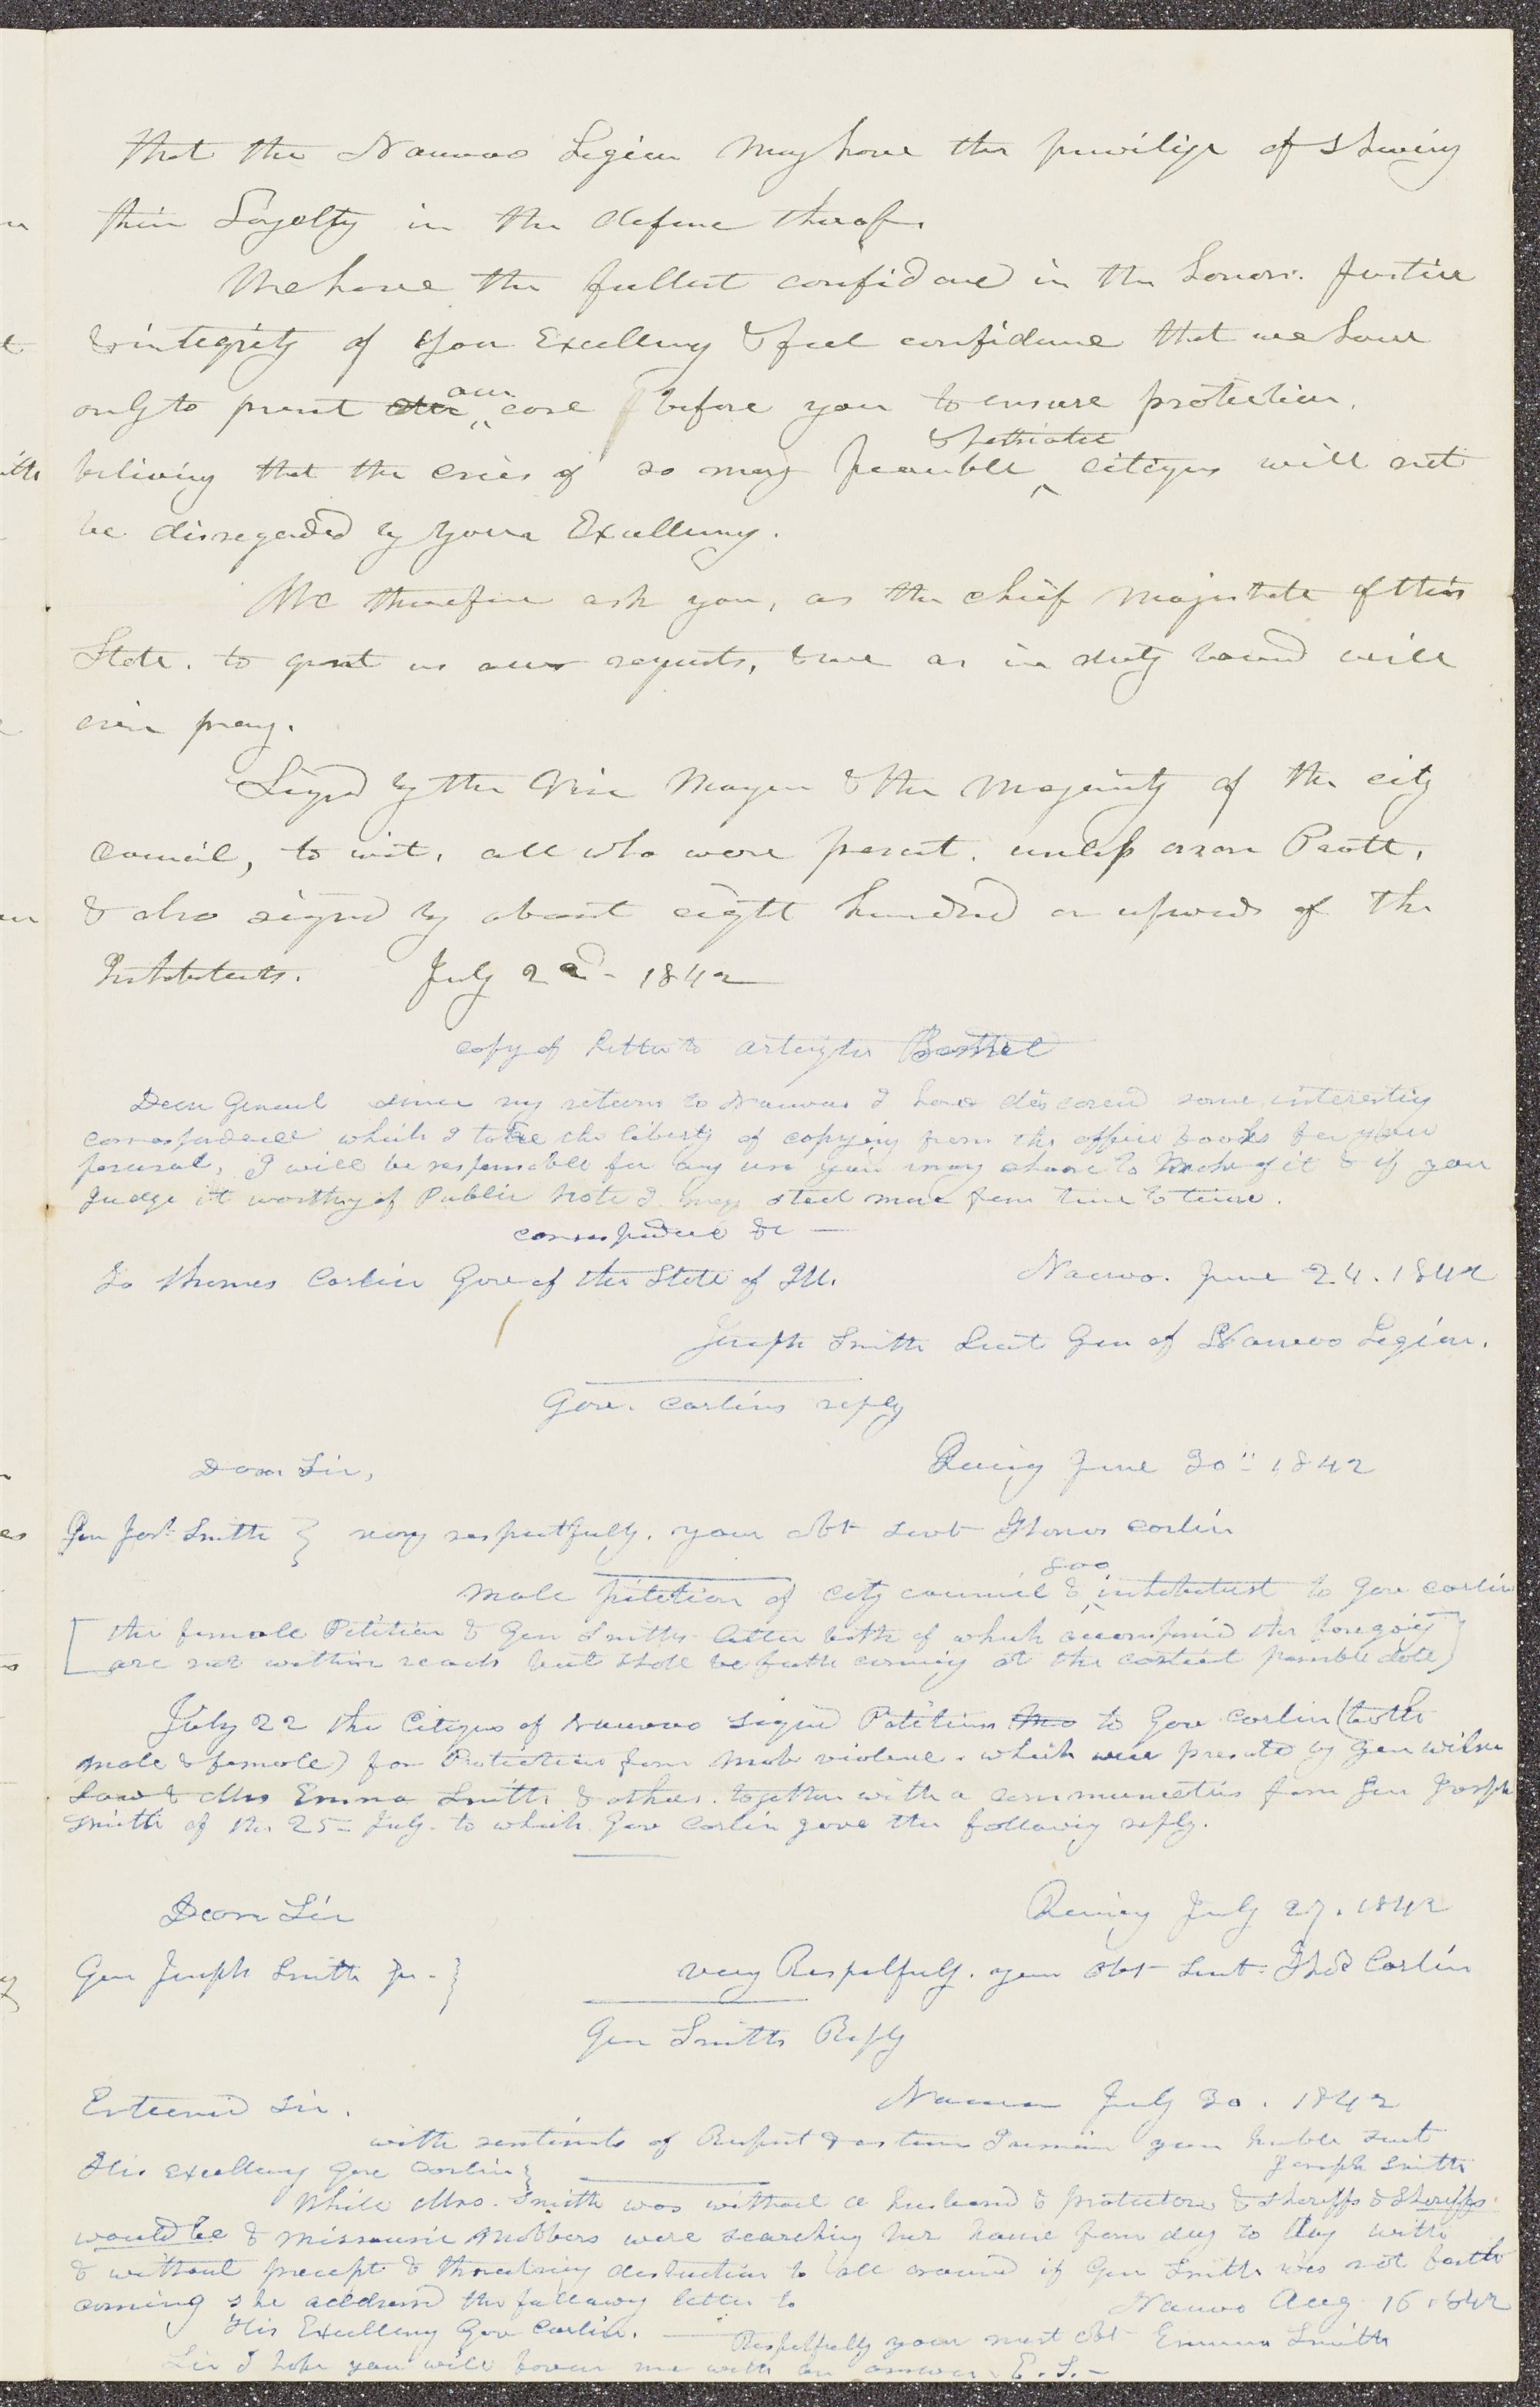 that the Nauvoo Legion may have the privilige of shewing
thier Loyalty in the defence thereof.
We have the fullest confidence in the honor. Justice
& integrity of Your Excellency & feel confidence that we have
only to presnt our case before you to ensure protection.
beliving that the cries of so many peaceible & patriotic citizens will not
be disregarded by Your Excellency.
We therefore ask you, as the chief magistrate of this
State. to grant us our requests, & we as in duty bound will
ever pray.
Signed by the Vice Mayor & the majority of the city
Council, to wit, all who were present. unless orson Pratt,
& also signed by about eight hundred or upwards of the
Inhabitants. July 22d- 1842
copy of Letter to Bennet
Dear General since my return to Nauvoo I have discovered some interesting
correspondence which I take the liberty of copying from the office books for your
perusal, I will be responsible for any use you may choose to make of it & if you
Judge it worthy of Public note I may steal more from time to time.
correspondence &c —
To Thomas Carlin Gove of the State of Ill. Nauvoo. June 24. 1842
Joseph Smith Lieut Gen of Nauvoo Legion.
Gove. Carlins reply
Dear Sir, Quincy June 30" 1842
Gen Jos. Smith } very respectfully. your obt servt Thomas Carlin
Male petition of city council & 800 inhabitants to Gov Carlin
[the female Petition & Gen Smiths letter both of which accompanied the foregoing
are not within reach but shall be forth coming at the earliest possible date]
July 22 the Citizens of Nauvoo signed Petitions to Gov Carlin (both
male & female) for Protection from Mob violence. which were presented by Gen Wilson
Law & Mrs Emma Smith & others. together with a communication from Gen Joseph
Smith of the 25— July. to which Gov Carlin gave the following reply.
Dear Sir Quincy July 27. 1842
Gen Joseph Smith } very Respetfuly. your obt- sevt- Thos Carlin
Gen Smiths Reply
Esteemed Sir. Nauvoo July 30. 1842
with sentiments of Respect & esteem I remain your humble servt
His Excellency Gove Carlin } Joseph Smith
While Mrs. Smith was without a husband & protector & Sheriffs & Sheriffs
would be & Missourie Mobbers were searching her house from day to day with
& without precept & threatning destruction to all around if Gen Smith was not forth
coming she addressed the following letter to Nauvoo Aug 16 1842
His Excellency Gov Carlin. — Respetfully your most obt Emma Smith
Sir I hope you will favour me with an answer E. S. —